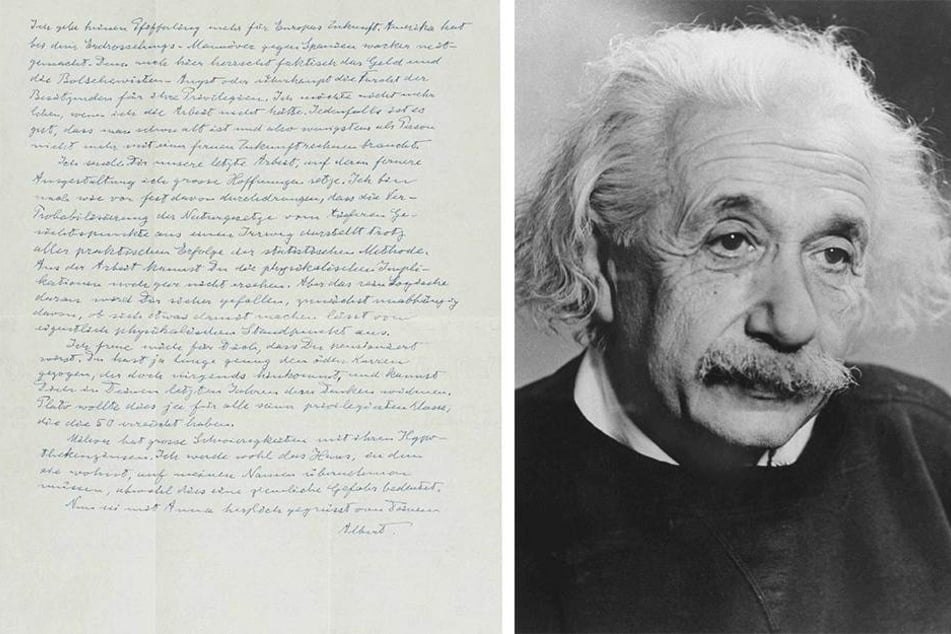 Ich gebe keinen Pfifferling mehr für Europas Zukunft. Amerika hat
bei dem Erdrosselungs-Manöver gegen Spanien wacker mit-
gemacht. Denn auch hier herrscht faktisch das Geld und
die Bolschewisten-Angst oder überhaupt die Furcht der
Besitzenden für ihre Privilegien. Ich möchte nicht mehr
leben, wenn ich die Arbeit nicht hätte. Jedenfalls ist es
gut, dass man schon alt ist und also wenigstens als Person
nicht mehr mit einer fernen Zukunft rechnen braucht.
Ich sende Dir unsere letzte Arbeit, auf deren fernere
Ausgestaltung ich grosse Hoffnungen setze. Ich bin
nach wie vor fest davon durchdrungen, dass die Ver-
Probabilisierung der Naturgesetze vom tieferen Ge-
sichtspunkte aus einen Irrweg darstellt trotz
aller praktischen Erfolge der statistischen Methode.
Aus der Arbeit kannst Du die physikalischen Impli-
kationen noch gar nicht ersehen. Aber das rein Logische
daraus wird Dir sicher gefallen, zunächst unabhängig
davon, ob sich etwas damit machen lässt vom
eigentlich physikalischen Standpunkt aus.
Ich freue mich für Dich, dass Du pensioniert
wirst. Du hast ja lange genug den öden Karren
gezogen, der doch nirgends hinkommt, und kannst
Dich in Deinen letzten Jahren dem Denken widmen.
Plato wollte dies ja für alle seine privilegierten Klasse,
die die 50 erreicht haben.
Mileva hat grosse Schwierigkeiten mit ihren Hypo-
thekenzinsen. Ich werde wohl das Haus, in dem
sie wohnt, auf meinen Namen übernehmen
müssen, obwohl dies eine ziemliche Gefahr bedeutet.
Nun sei mit Anna herzlich gegrüsst von Deinem
Albert.